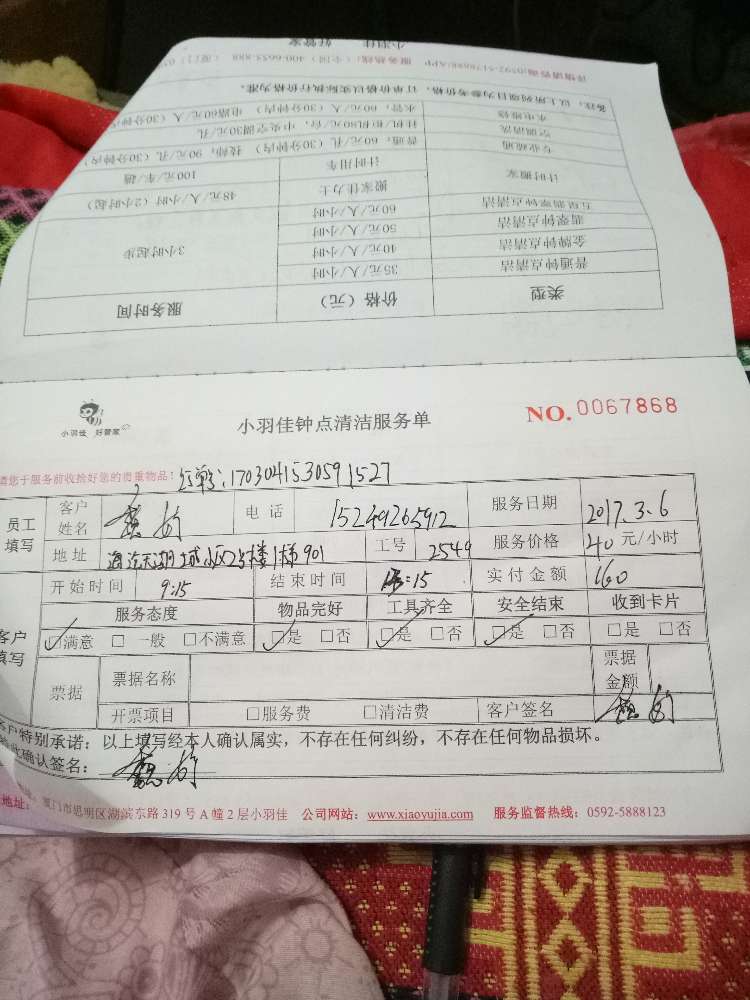 小羽佳 好管家 服务热线:(全国)400-6655-888
详情请咨询0592-5178688/APP
类型 价格(元) 服务时间
普通钟点清洁 35元/人/小时 3小时起步
金牌钟点清洁 40元/人/小时
翡翠钟点清洁 50元/人/小时
五星翡翠钟点清洁 60元/人/小时
计时搬家 搬家佳力士 48元/人/小时(2小时起)
计时用车 100元/车/趟
专业疏通 普通,60元/孔(30分钟内) 技师,90元/孔(30分钟内)
空调清洗 挂机/柜机80元/台,中央空调30元/孔
水电维修 水管,60元/人(30分钟内) 电路60元/人(30分钟内)
备注,以上所列项目为参考价格,订单价格以实际执行价格为准。
小羽佳 好管家
小羽佳钟点清洁服务单
NO. 0067868
请您于服务前收捡好您的贵重物品!
170304153059 1527
员工填写 客户姓名 电话 15249265912 服务日期 2017.3.6
地址 2号楼1梯901 工号 2549 服务价格 40 元/小时
开始时间 9:15 结束时间 :15 实付金额 160
客户填写 服务态度 物品完好 工具齐全 安全结束 收到卡片
☑满意 □一般 □不满意 ☑是 □否 ☑是 □否 ☑是 □否 □是 □否
票据 票据名称 票据金额
开票项目 □服务费 □清洁费 客户签名
客户特别承诺:以上填写经本人确认属实,不存在任何纠纷,不存在任何物品损坏。
确认签名:
地址: 厦门市思明区湖滨东路319号A幢2层小羽佳 公司网站:www.xiaoyujia.com 服务监督热线:0592-5888123